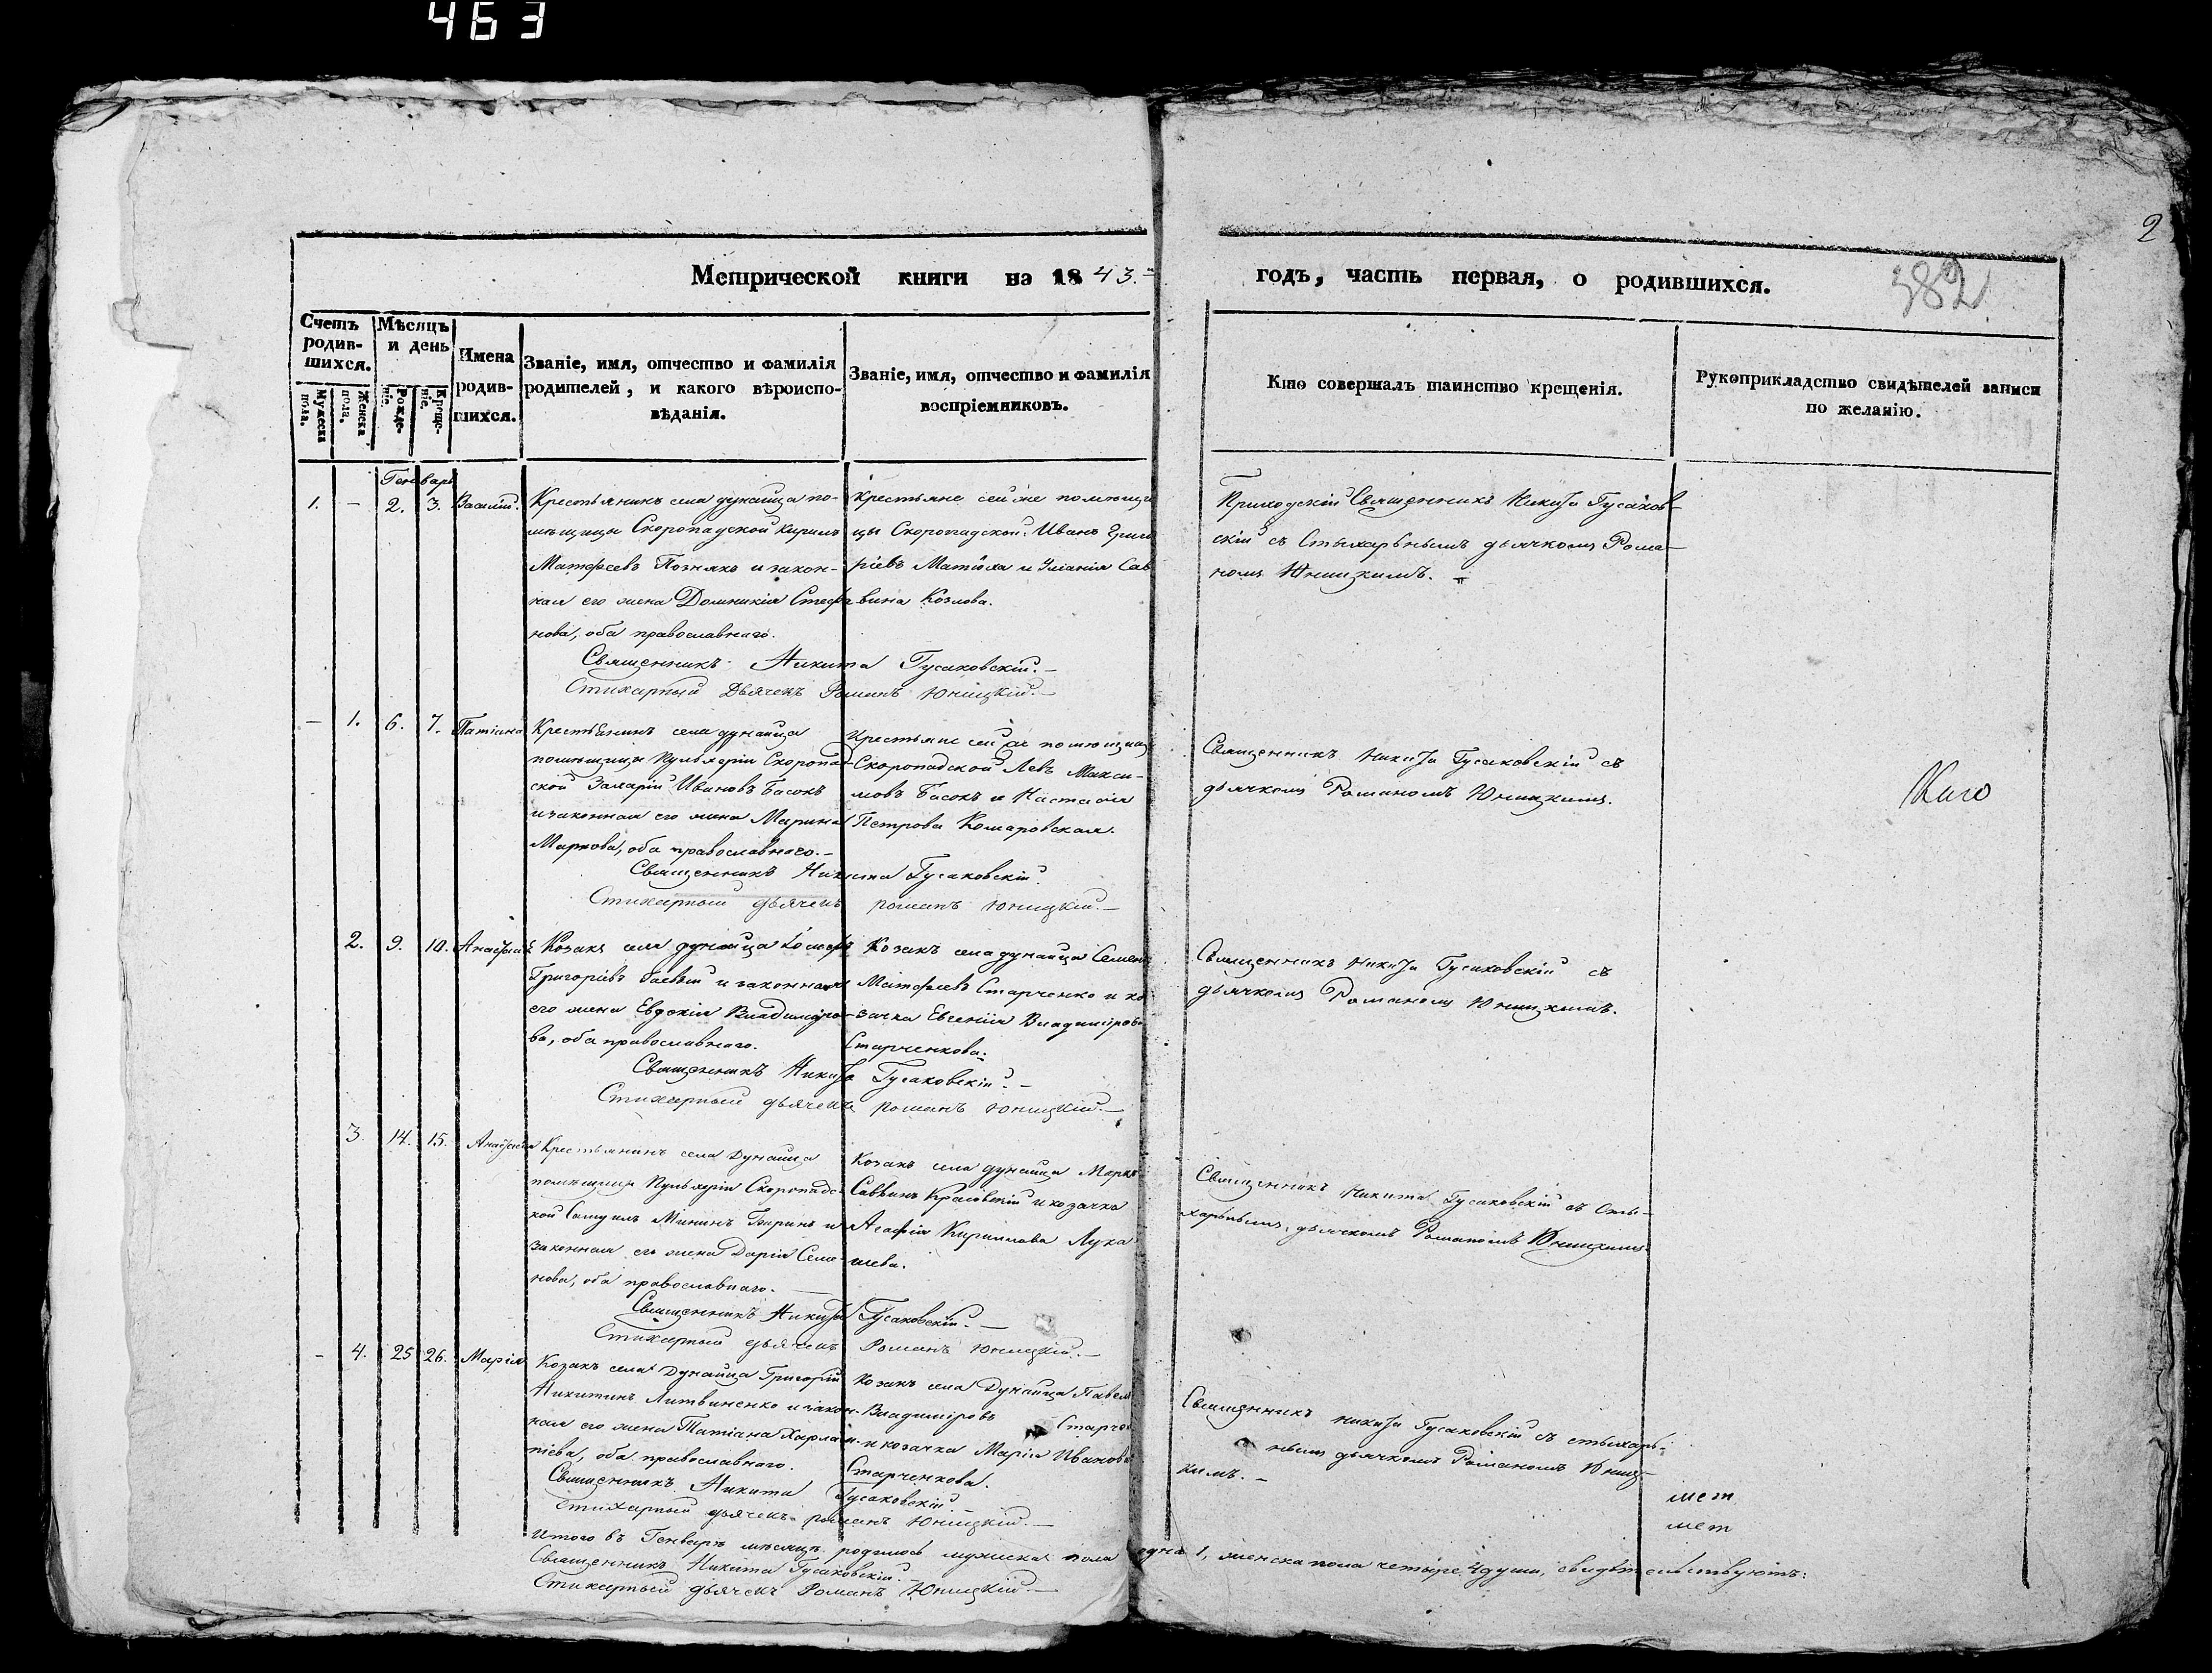 463
2
382
Метрической книги на 1843. годъ, часть первая, о родившихся.
Счетъ родившихся.
Мужеска пола.
Женска пола.
Мѣсяцъ и день
Рожденіе.
Крещеніе.
Имена родившихся.
Званіе, имя, отчество и фамилія родителей, и какого вѣроисповѣданія.
Званіе, имя, отчество и фамилія воспріемниковъ.
Кто совершалъ таинство крещенія.
Рукоприкладство свидѣтелей записи по желанію.
Генварь
1. – 2. 3. Василій.
Крестьянинъ села дунайца по-
мѣщицы Скоропадской Кирилъ
Матфеевъ Познякъ и закон-
ная его жена Домникія Стефа
нова, оба православнаго.
Крестьяне сей же помѣщи
цы Скоропадской: Иванъ Григо
ріевъ Матюха и Уліанія Сав
вина Козлова.
Приходскій Священникъ Никита Гусаков-
скій съ Стыхарнымъ дьячкомъ Рома-
номъ Юницкимъ.
Священникъ Никита Гусаковскій.–
Стихарный Дьячекъ Романъ Юницкій.–
– 1. 6. 7. Татіана
Крестьянинъ села дунайца
помѣщицы Пульхеріи Скоропад-
ской Захарій Ивановъ Басокъ
и законная его жена Марина
Маркова, оба православнаго.–
Крестьяне сей же помѣщицы
Скоропадской Левъ Макси-
мовъ Басокъ и Настасія
Петрова Комаровская.
Священникъ Никита Гусаковскій съ
дьячкомъ Романомъ Юницкимъ.
Священникъ Никита Гусаковскій.
Стихарный дьячекъ романъ Юницкій.–
2. 9. 10.
Козакъ села дунайца
Григоріевъ и законная
его жена Евдокія Владиміро-
ва, оба православнаго.
Козакъ села дунайца Семенъ
Матфеевъ Старченко и ко
зачка Евгенія Владимірова
Старченкова.
Священникъ Никита Гусаковскій съ
дьячкомъ Романомъ Юницкимъ.
Священникъ Никита Гусаковскій.–
Стихарный дьячекъ романъ Юницкій.–
3. 14. 15.
Крестьянинъ села Дунайца
помѣщицы Пульхеріи Скоропадс-
кой Самуилъ Мининъ и
законная его жена Дарія Симо-
нова, оба православнаго.
Козакъ села дунайца Марко
Саввинъ Красовскій и козачка
Агафія Кириллова Лука
шева.
Священникъ Никита Гусаковскій съ Сты-
харнымъ, дьячкомъ Романомъ Юницкимъ.
Священникъ Никита Гусаковскій.–
Стихарный дьячекъ Романъ Юницкій.–
– 4. 25 26. Марія
Козакъ села Дунайца Григорій
Никитинъ Литвиненко и закон-
ная его жена Татіана Харлам-
піева, оба православнаго.
Козакъ села Дунайца Павелъ
Владиміровъ
и козачка Марія Иванова
Старченкова.
Священникъ Никита Гусаковскій съ стыхарь-
нымъ дьячкомъ Романомъ Юниц-
кимъ.–
Священникъ Никита Гусаковскій
Стихарный дьячекъ романъ Юницкій.–
Итого въ Генварѣ мѣсяцѣ родилось мужеска пола одна 1, женска пола четыре 4 души, свидѣтельствуютъ:
Священникъ Никита Гусаковскій.–
Стихарный дьячекъ Романъ Юницкій.–